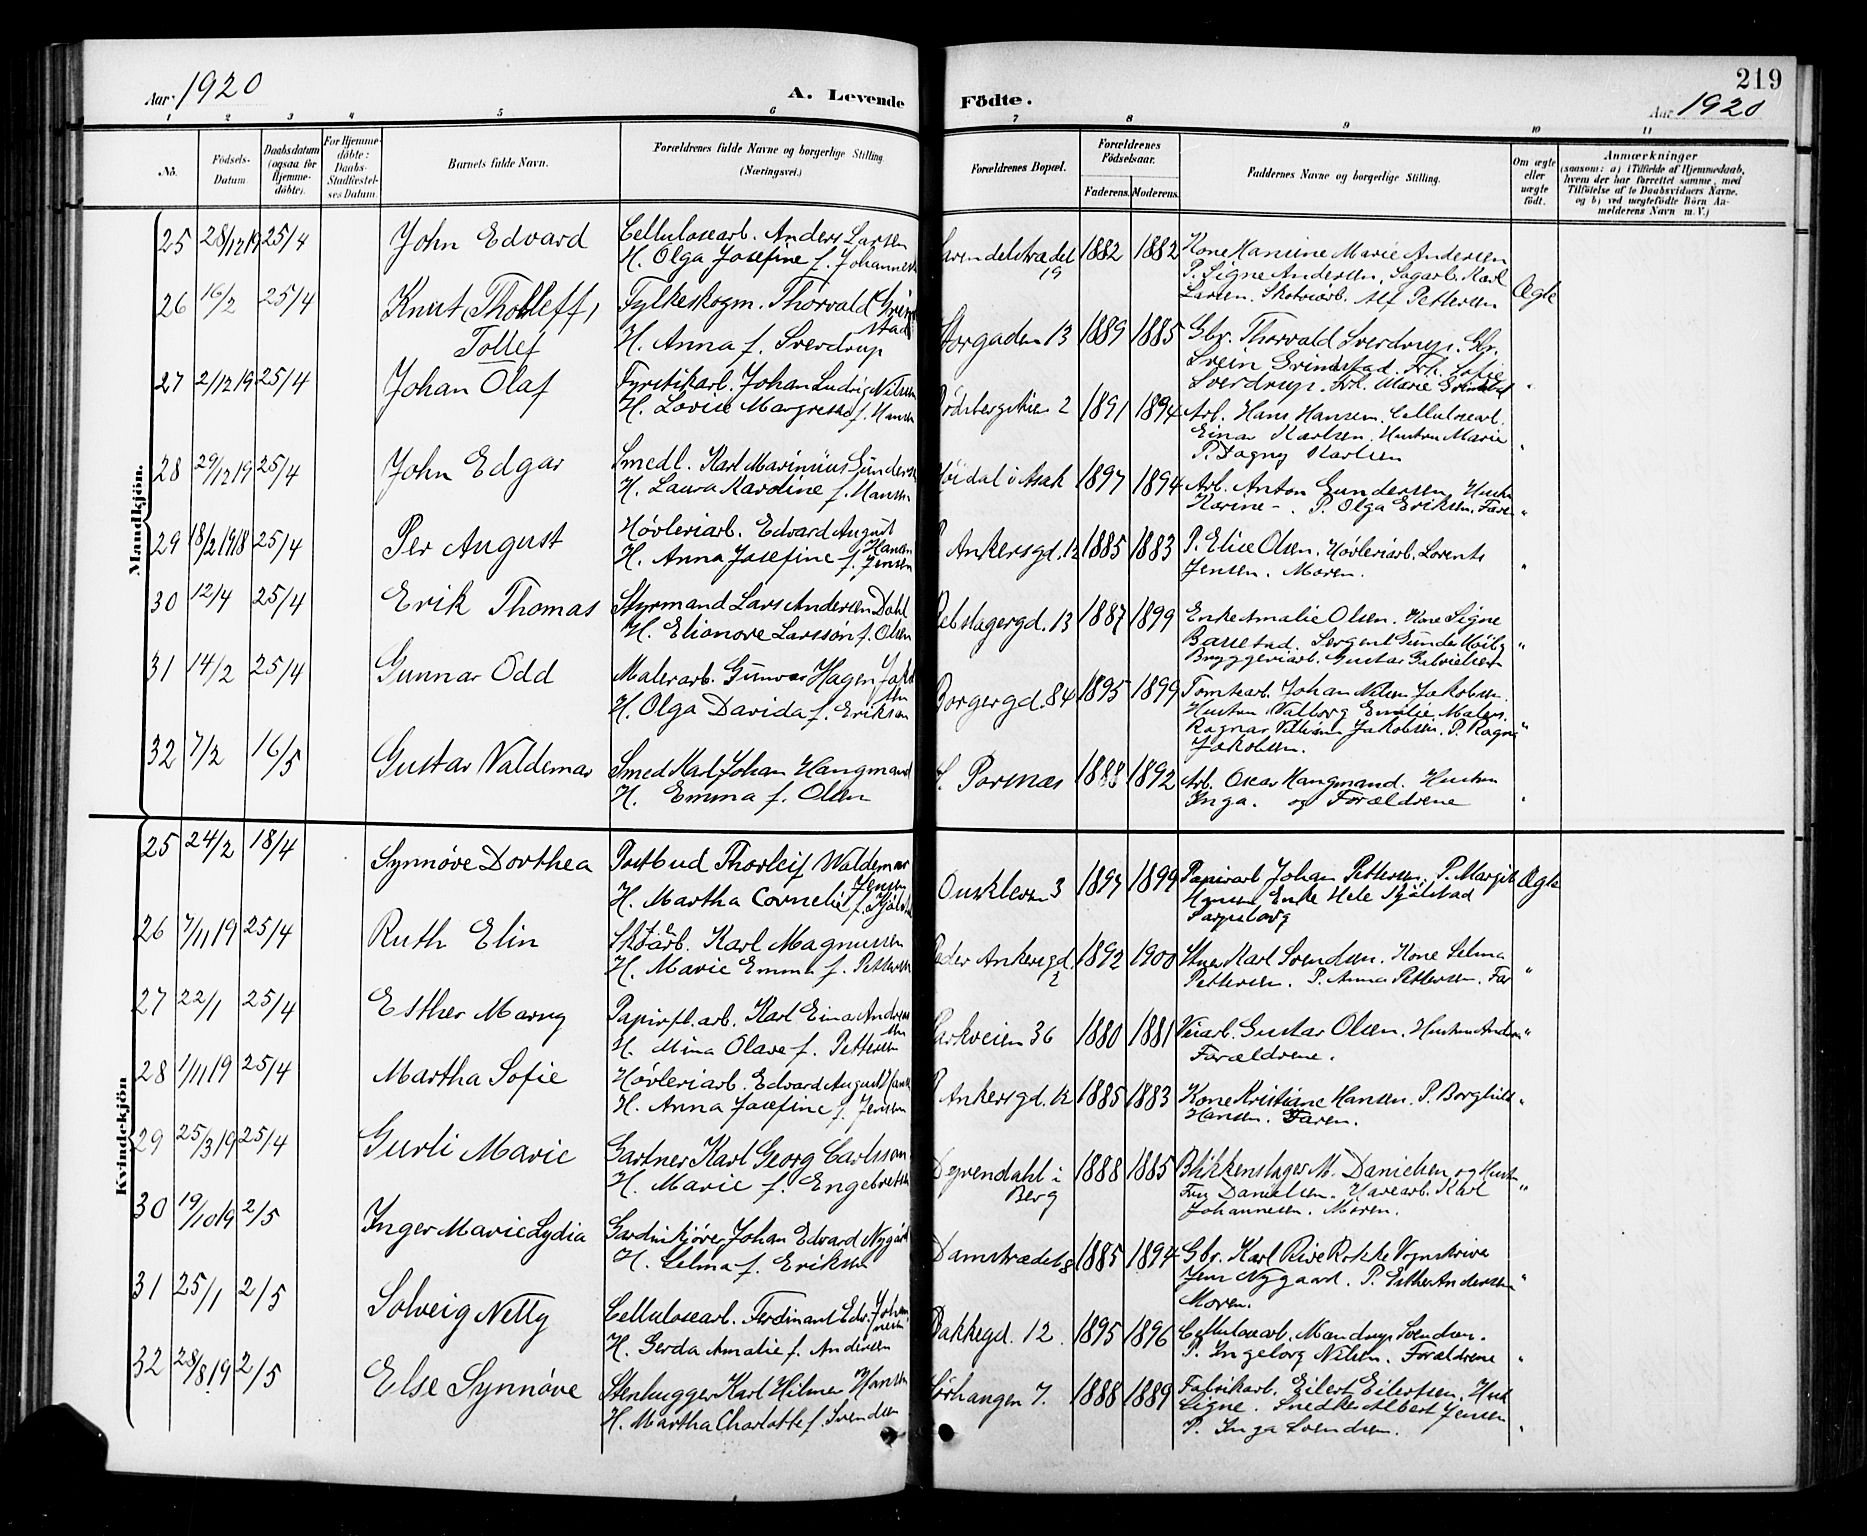 Aar 1920
A. Levende Födte.
219
Aar 1920
1 2 3 4 5 6 7 8 9 10 11
No.
Födsels-Datum
Daabsdatum (ogsaa for Hjemme-döbte).
For Hjemme-döbte: Daabs-Stadfæstel-ses Datum.
Barnets fulde Navn.
Forældrenes fulde Navne og borgerlige Stilling. (Næringsvei.)
Forældrenes Bopæl.
Forældrenes Födselsaar.
Faderens. Moderens.
Faddernes Navne og borgerlige Stilling.
Om ægte eller uægte födt.
Anmærkninger
(saasom: a) i Tilfælde af Hjemmedaab,
hvem der har forrettet samme, med
Tilföielse af to Daabsvidners Navne,
og b) ved uægtefödte Börn An-
melderens Navn m. V.)
Mandkjön.
25 28/12 19 25/4 John Edvard Cellulosearb. Anders Larsen
H. Olga Josefine f.
19 1882 1882 Kone Marie Andersen
P. Signe Andersen, Sagarb. Karl
Larsen. Alf Pettersen Ægte
26 16/2 25/4 Knut Tholleff,
Tollef
Thorvald
H. Anna f. Sverdrup
Storgaden 13 1889 1885 Gbr. Thorvald Sverdrup. Gbr.
Svein Grindstad. Frk. Sofie
Sverdrup. Frk. Marie
27 2/12 19 25/4 Johan Olaf Fyrstikarb. Johan Ludvig Nilsen
H. Lovise f. Hansen
2 1891 1894 Arb. Hans Hansen. Cellulosearb.
Einar Karlsen. Hustru Marie
P. Dagny Karlsen "
28 29/12 19 25/4 John Edgar Smedl. Karl Marinius
H. Laura Karoline f. Hansen
i Asak 1897 1894 Arb. Anton Gundersen Hustru
Karine -. P. Olga Eriksen. "
29 18/2 1918 25/4 Per August Høvleriarb. Edvard August
Hansen
H. Anna Josefine f. Jensen
P Ankersgd. 12 1885 1883 P. Elise Olsen. Høvleriarb. Lorents
Jensen. Moren. "
30 12/4 25/4 Erik Thomas Styrmand Lars Andersen Dahl
H. Elionore Larssøn f. Olsen
Rebslagergd. 13 1887 1899 Enke Amalie Olsen. Kone Signe
Sergent
Bryggeriarb. Gustav "
31 14/2 25/4 Gunnar Odd Malerarb. Gunvar Hagen
H. Olga Davida f. Eriksen
Borgergd. 84 1895 1899 Tomtearb. Johan Nilsen Jakobsen.
Hustru Valborg Emilie. Malers.
Ragnar Jakobsen. P. Ragna
Jakobsen. "
32 7/2 16/5 Gustav Valdemar Smed Karl Johan Hangmand
H. Emma f. Olsen
1888 1892 Arb. Oscar Hangmand. Hustru
Inga. og Forældrene "
Kvindekjön
25 24/2 18/4 Synnøve Dorthea Postbud Thorleif Waldemar
Jensen
H. Martha Cornelie f.
3 1897 1899 Papirarb Johan Pettersen. P. Margit
Enke
Sarpsborg Ægte
26 7/11 19 25/4 Ruth Elin Karl Magnussen
H. Marie Emma f. Pettersen
Peder Ankersgd.
2 1892 1900 Karl Svendsen. Kone Selma
Pettersen. P. Anna Pettersen. Far "
27 22/1 25/4 Esther Marny Papirfl.arb. Karl Einar Andreas
sen
H. Mina Olave f. Pettersen
Parkveien 36 1880 1881 Veiarb. Gustav Olsen.
Forældrene. "
28 1/11 19 25/4 Martha Sofie Høvleriarb. Edvard August
H. Anna Josefine f. Jensen
P Ankersgd. 12 1885 1883 Kone Kristiane Hansen. P. Borghild
Hansen. Faren. "
29 25/3 19 25/4 Gurli Marie Gartner Karl Georg Carlsson
H. Marie f. Engebretsen
i
Berg 1888 1885 Blikkenslager M. Danielsen og Hustru
Fru Danielsen. Karl
Johannesen. Moren. "
30 19/10 19 2/5 Inger Marie Lydia Johan Edvard
H. Selma f. Eriksen
Damstrædet 8 1885 1894 Gbr. Karl
Jens Nygaard. P. Esther Andersen
Moren. "
31 25/1 2/5 Solveig Netty Cellulosearb. Ferdinant Edv. Johan
nesen
H. Gerda Amalie f. Andersen
Bakkegd. 12. 1895 1896 Cellulosearb. Mandrup Svendsen.
P. Ingeborg Nilsen. Forældrene "
32 28/8 19 2/5 Else Synnøve Stenhugger Karl Hilmer Hansen
H. Martha Charlotte f. Svendsen
7. 1888 1889 Fabrikarb. Eilert Eilertsen. Hust
Signe. Snedker Albert Jensen
P. Inga Svendsen. "